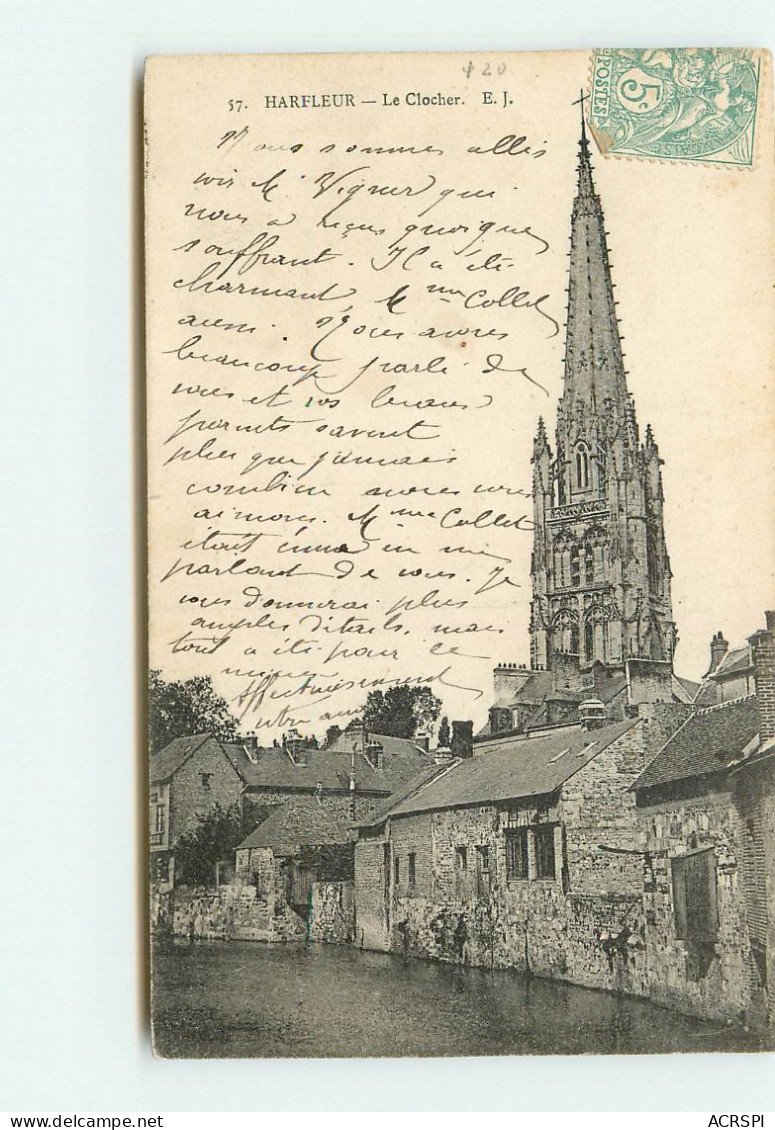 $20
57. HARFLEUR — Le Clocher. E. J.
5c
POSTES
Nous sommes allés
voir M. Vigner qui
nous a reçus quoique
souffrant. Il a été
charmant, Mme Collet
aussi. Nous avons
beaucoup parlé de
vous et vos beaux
parents savent
plus que jamais
combien nous vous
aimons. Mme Collet
était émue en me
parlant de vous. Je
vous donnerai plus
amples détails, mais
tout a été pour le
mieux
affectueusement
ACRSPI